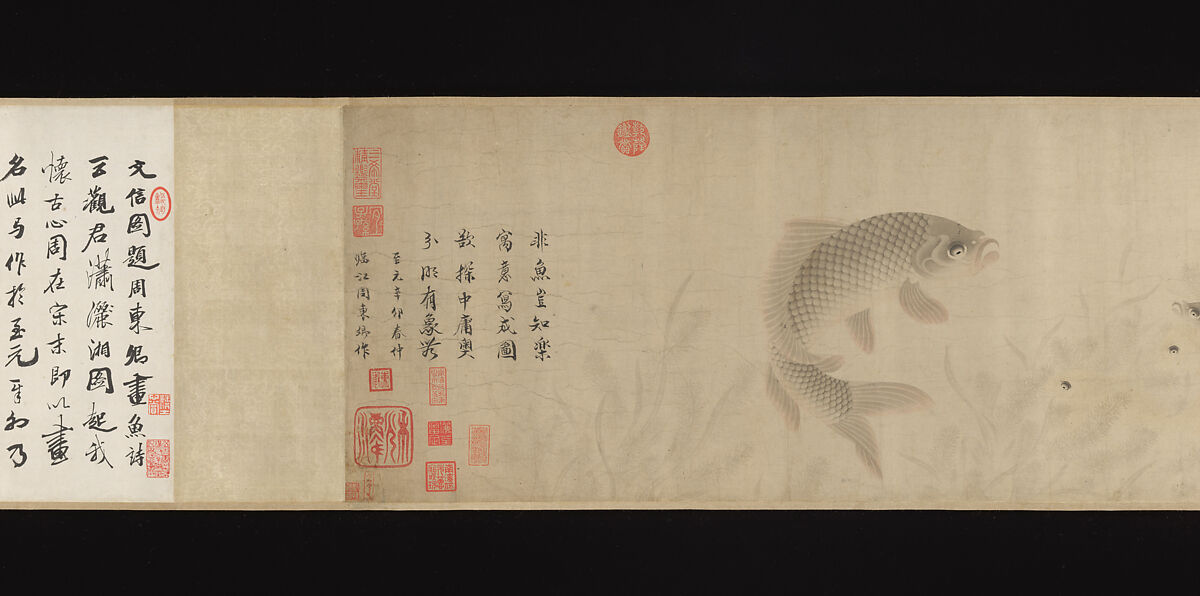 非魚豈知樂
寓意寫成圖
欲探中庸奧
分明有象無
至元辛卯春仲
臨江周東卿作
文信國題周東卿畫魚詩
云觀君瀟灑湘圖起我
懷古心周在宋末即以畫
名此作於至元辛卯乃